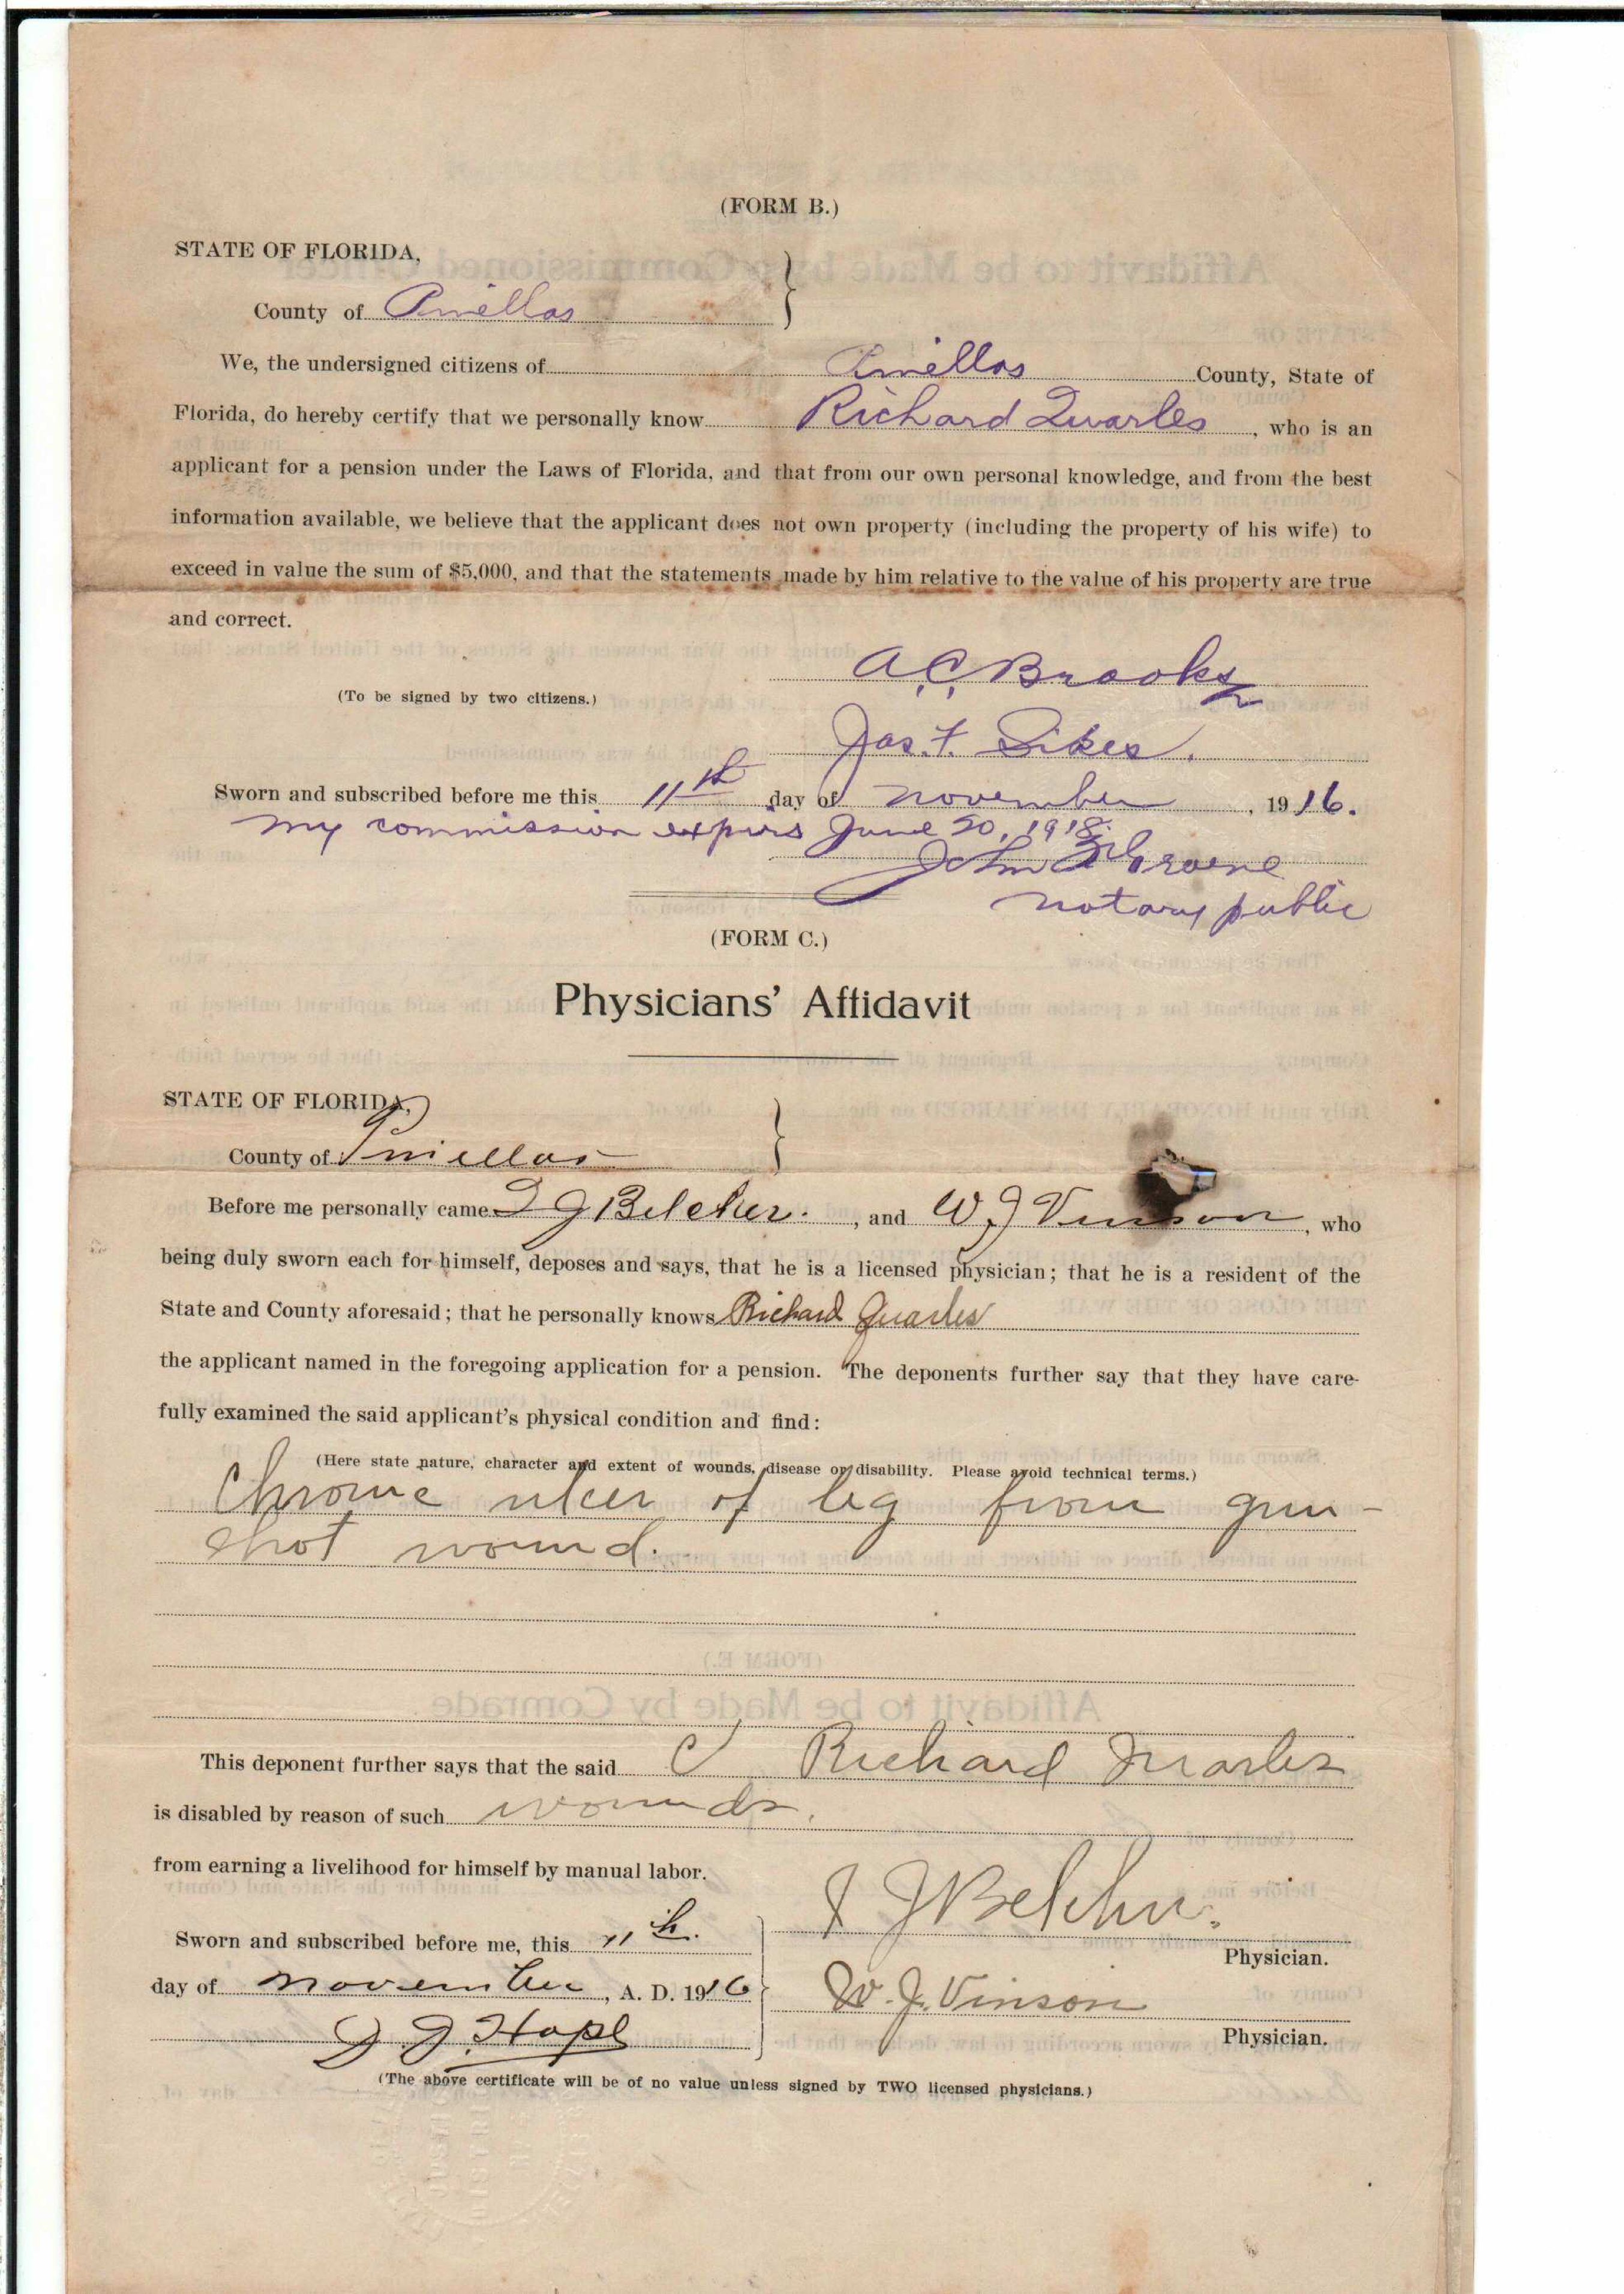 (FORM B.)
STATE OF FLORIDA,
County of Pinellas
We, the undersigned citizens of Pinellas County, State of
Florida, do hereby certify that we personally know Richard Quarles, who is an
applicant for a pension under the Laws of Florida, and that from our own personal knowledge, and from the best
information available, we believe that the applicant does not own property (including the property of his wife) to
exceed in value the sum of $5,000, and that the statements made by him relative to the value of his property are true
and correct.
A.C. Brooks
(To be signed by two citizens.)
Jas. F. Sikes.
Sworn and subscribed before me this 11th day of November, 1916.
My commission expires June 20, 1918.
John
Notary public
(FORM C.)
Physicians' Affidavit
STATE OF FLORIDA,
County of Pinellas
Before me personally came J Belcher., and W J Vinson, who
being duly sworn each for himself, deposes and says, that he is a licensed physician; that he is a resident of the
State and County aforesaid; that he personally knows Richard Quarles
the applicant named in the foregoing application for a pension. The deponents further say that they have care-
fully examined the said applicant's physical condition and find:
(Here state nature, character and extent of wounds, disease or disability. Please avoid technical terms.)
Chronic ulcer of leg from gun-
shot wound.
This deponent further says that the said Richard Quarles
is disabled by reason of such wounds.
from earning a livelihood for himself by manual labor.
J Belcher.
Sworn and subscribed before me, this 11th.
Physician.
day of November, A. D. 1916
W. J. Vinson
J. Hope
Physician.
(The above certificate will be of no value unless signed by TWO licensed physicians.)